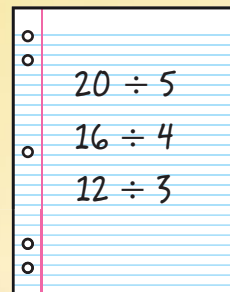 20 ÷ 5
16 ÷ 4
12 ÷ 3